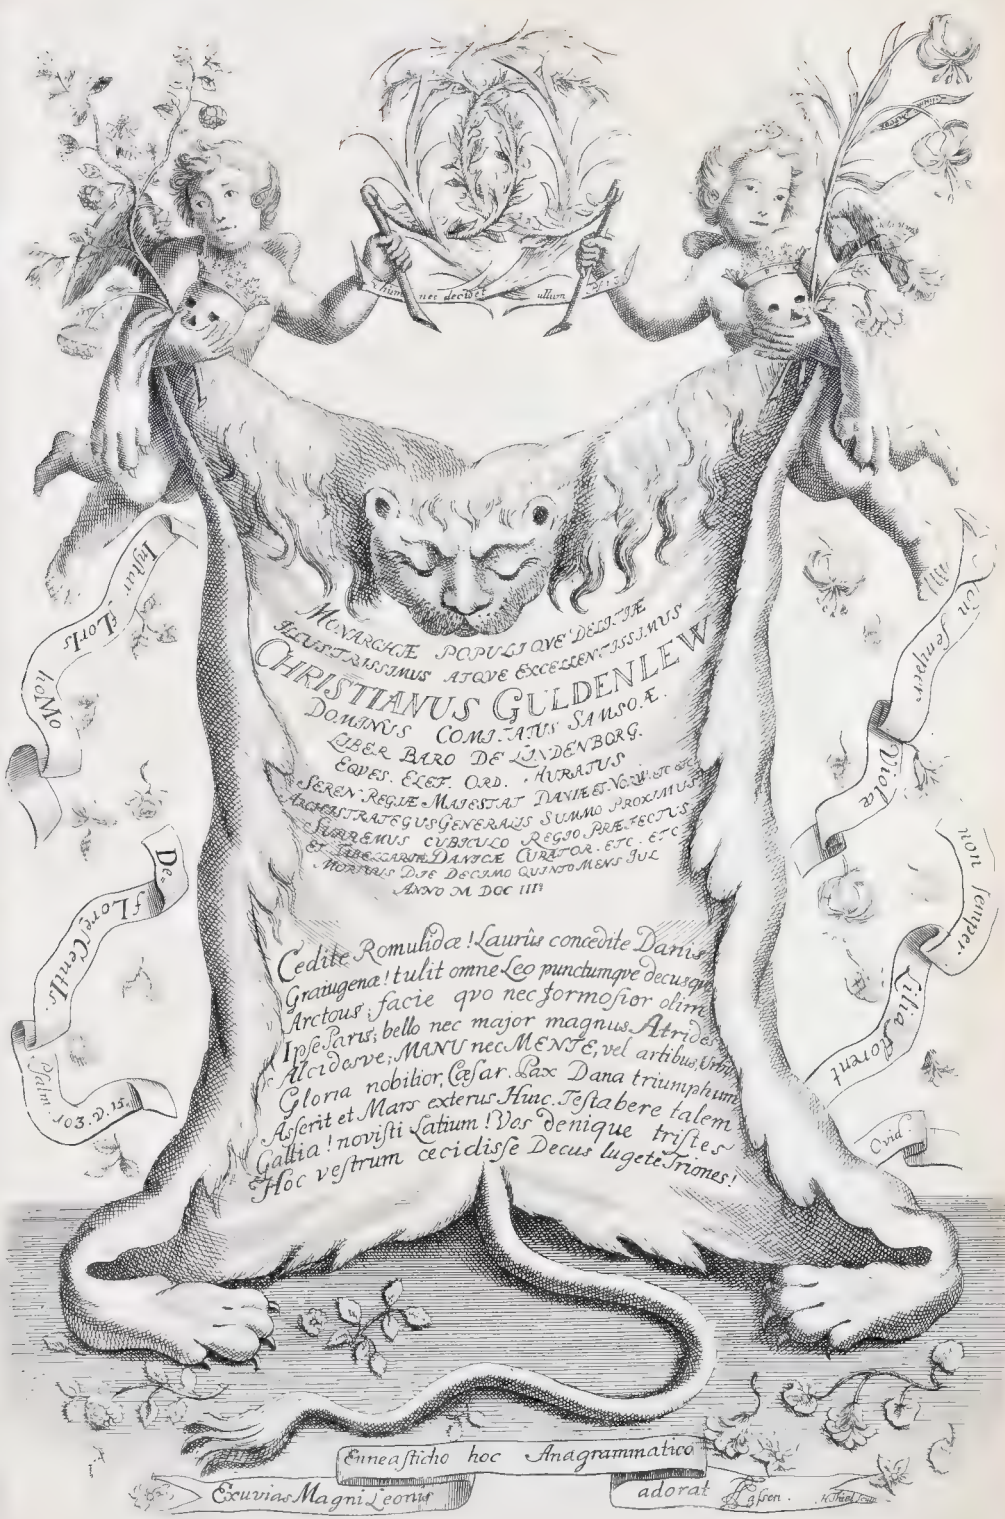 hunc nec decidet ullum
Instar
fLorIs
hoMo
De-
fLoresCentIs.
Psalm. 103. v. 15.
Non semper
Violæ
non semper
Lilia florent
Ovid.
MONARCHÆ POPULIQVE DELITIÆ
ILLUSTRISSIMUS ATQVE EXCELLENTISSIMUS
CHRISTIANUS GULDENLEW
DOMINUS COMITATUS SAMSOÆ.
LIBER BARO DE LINDENBORG.
EQVES. ELEF. ORD. AURATUS
SEREN REGIÆ MAIESTAT DANIÆ ET NORW. ETC ETC
ARCHISTRATEGUS GENERALIS SUMMO PROXIMUS
SUPREMUS CUBICULO REGIO PRÆFECTUS
ET TABELLARIÆ DANICÆ CURATOR. ETC. ETC
MORTUUS DIE DECIMO QUINTO MENS JUL
ANNO M DCC IIII
Cedite Romulidæ! Laurûs concedite Danis
Graiugenæ! tulit omne Leo punctumqve decusqve
Arctous; facie qvo nec formosior olim
Ipse Paris; bello nec major magnus Atrides
Alcidesve; MANU nec MENTE, vel artibus, Urbis
Gloria nobilior, Cæsar. Pax Dana triumphum
Asserit et Mars exterus Huic. Testabere talem
Gallia! novisti Latium! Vos denique tristes
Hoc vestrum cecidisse Decus lugete Triones!
Enneasticho hoc Anagrammatico
Exuvias Magni Leonis
adorat Lassen.
H. Thiel Sculp